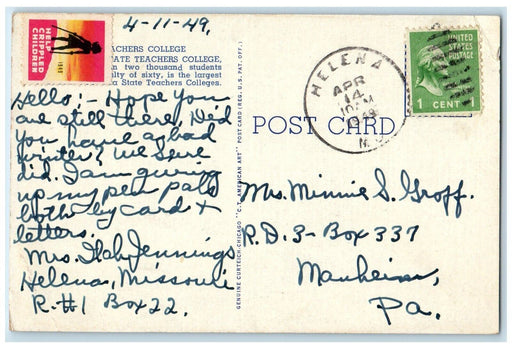 4-11-49.
HELP
CRIPPLED
CHILDREN
ACHERS COLLEGE
STATE TEACHERS COLLEGE,
n two thousand students
lty of sixty, is the largest
a State Teachers Colleges.
Hello:- Hope you
are still there, Did
you have a bad
winter? We sure
did. I am giving
up my pen pals
both by card +
letters.
Mrs. Ilah Jennings
Helena, Missouri
R.#1 Box 22.
GENUINE CURTEICH-CHICAGO "C.T. AMERICAN ART" POST CARD (REG. U.S. PAT. OFF.)
HELENA
APR
14
10 AM
1949
UNITED
STATES
POSTAGE
1 CENT
POST CARD
Mrs. Minnie S. Groff.
R.D. 3- Box 337
Manheim,
Pa.